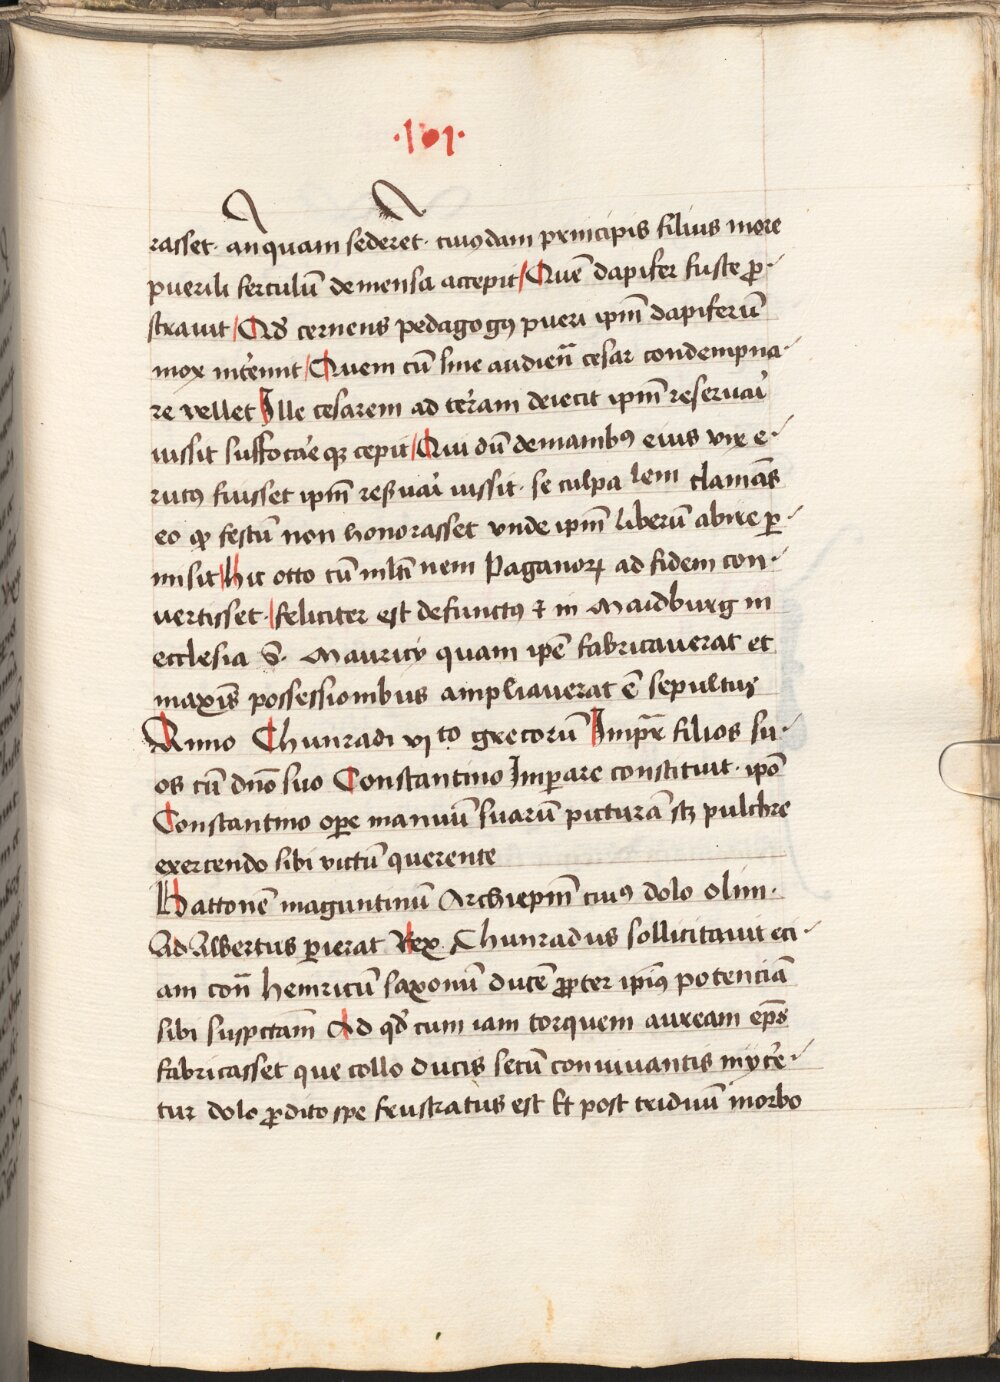 ·101·
rasset· anquam sederet· cuiusdam principis filius more
puerili ferculū de mensa accepit Quē dapifer fuste p̄-
stravit Qd̄ cernens pedagogꝰ pueri ipm̄ dapiferū
mox int̓emit Quem cū sine audien̄ cesar condempna-
re vellet Ille cesarem ad ter̓am deiecit ipm̄ reseruar̓
iussit suffocar̓e qꝫ cepit Qui dū de manibꝰ eius vix e-
rutꝰ fuisset ipm̄ reßuar̓ iussit· se culpa lem clamās
eo ꝙ festū non honorasset vnde ipm̄ liberū abire ꝑ-
misit hic otto cū nem Paganoꝝ ad fidem con-
vertisset· feliciter est defunctꝰ ⁊ in Maidburg in
ecclesia S̄· Mauricij quam ipē fabricauerat et
maxīs possessionibus ampliauerat ē sepultus
Anno Chunradi vj to grecorū Impr̄ filios su-
os cū dn̄o suo Constantino Imꝑare constituit· ipō
Constantino oꝑe manuū suarū picturā sꝫ pulchre
exercendo sibi victū querente
Hattonē maguntinū Archiepm̄ cuiꝰ dolo olim·
Adalbertus ꝑierat Rex Chunradus sollicitauit eci-
am con̄ heinricū saxonū ducē ꝓpter ipiꝰ potenciā
sibi suspctam Ad qd̄ cum iam torquem auream ep̄s
fabricasset que collo ducis secū conviuantis myt̓e-
tur dolo ꝓdito spe frustratus est Et post triduū morbo